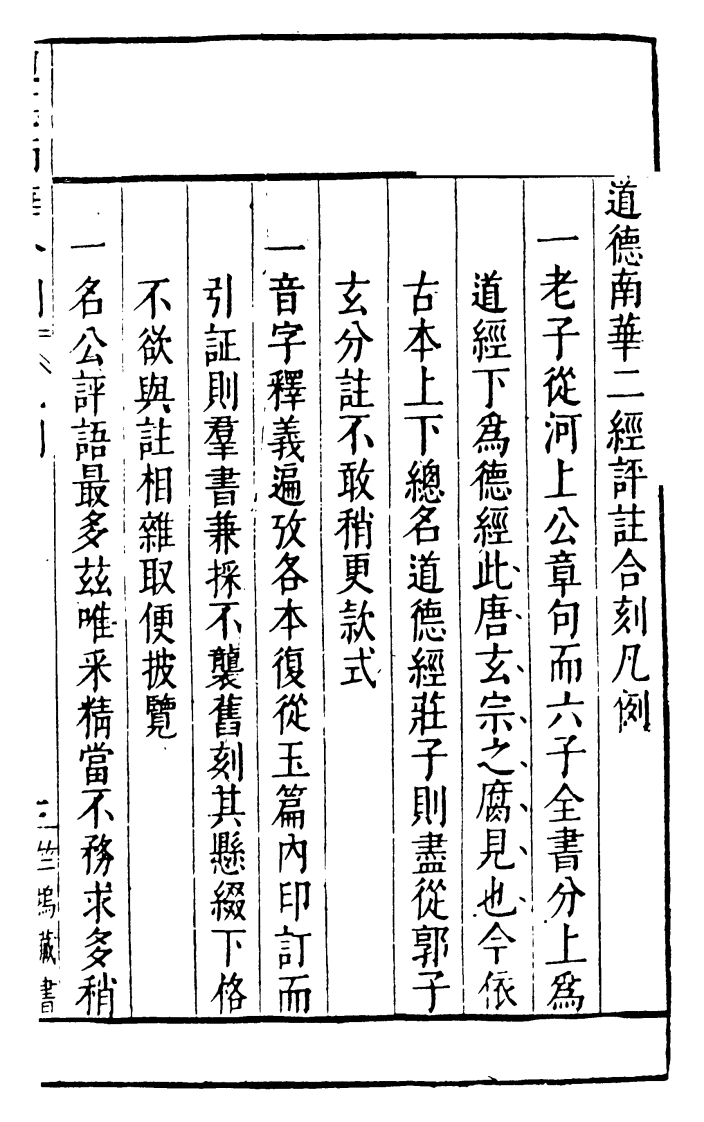 道德南華二經評註合刻凡例
一老子從河上公章句而六子全書分上爲
道經下爲德經此唐玄宗之腐見也今依
古本上下總名道德經莊子則盡從郭子
玄分註不敢稍更款式
一音字釋義遍攷各本復從玉篇內印訂而
引証則羣書兼採不襲舊刻其懸綴下格
不欲與註相雜取便披覽
一名公評語最多茲唯采精當不務求多稍